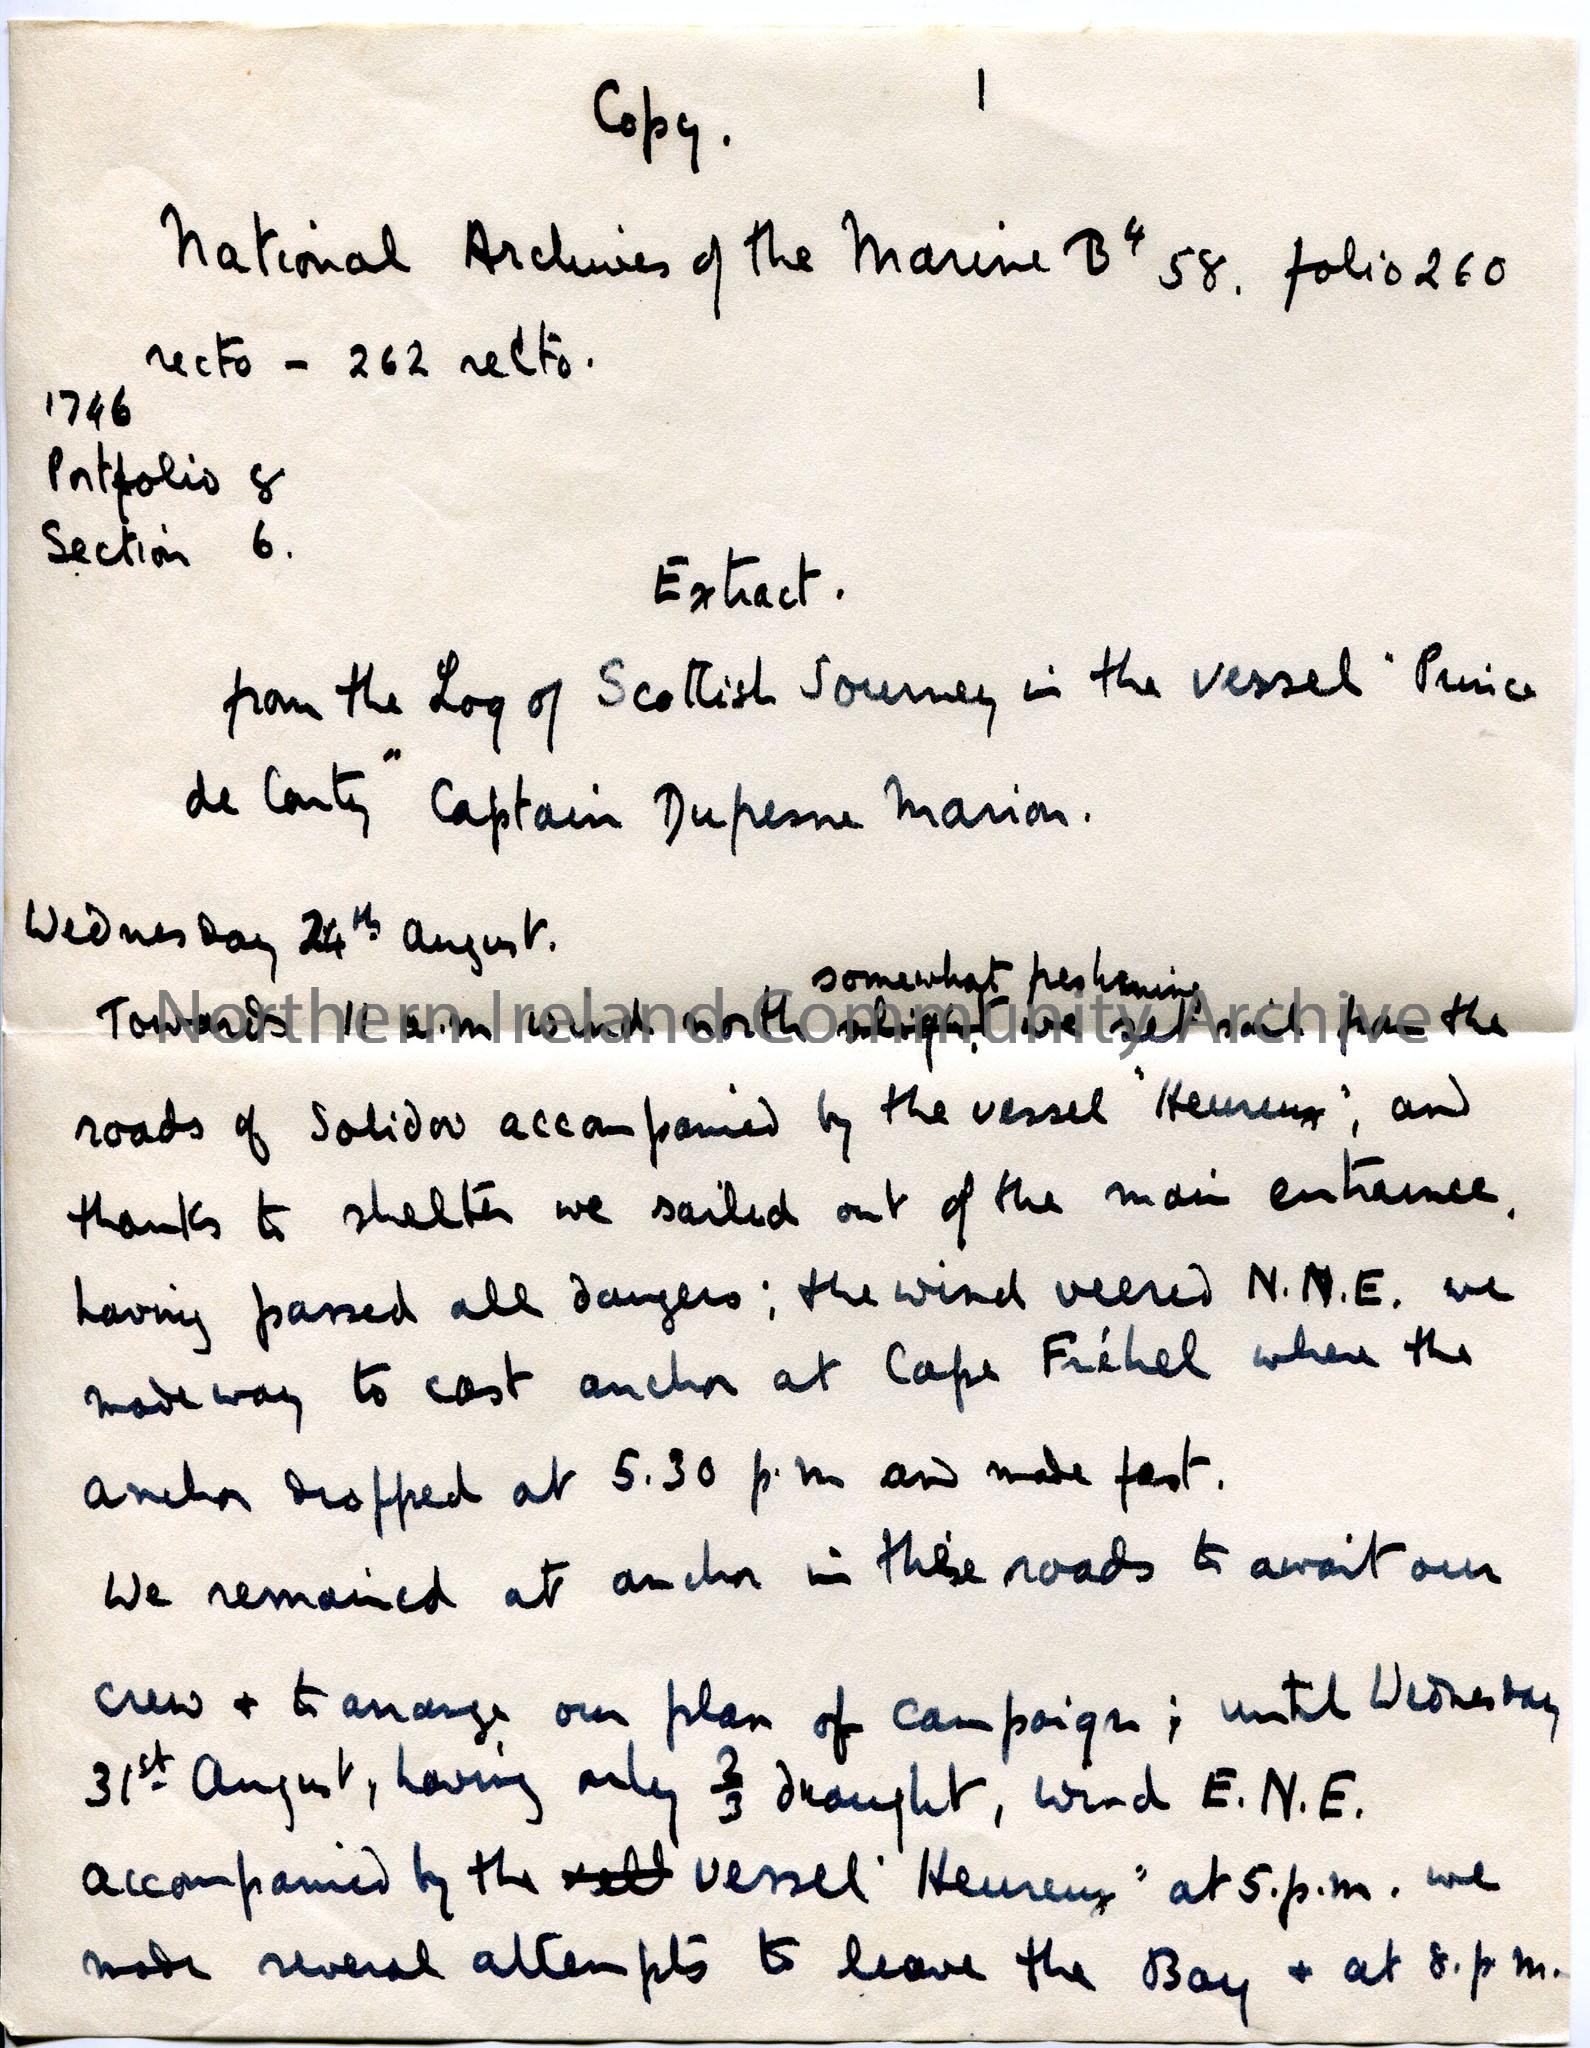 Copy. 1
National Archives of the Marine B⁴ 58. folio 260
recto - 262 recto.
1746
Portfolio 8
Section 6.
Extract.
from the Log of Scottish Journey in the vessel "Prince
de Conty" Captain Dufresne Marion.
Wednesday 24th August.
somewhat freshening
Towards 11 a.m wind north we set sail from the
Northern Ireland Community Archive
roads of Solidor accompanied by the vessel "Heureux", and
thanks to shelter we sailed out of the main entrance.
having passed all dangers; the wind veered N.N.E. we
made way to cast anchor at Cape Fréhel where the
anchor dropped at 5.30 p.m and made fast.
We remained at anchor in these roads to await our
crew + to arrange our plan of campaign; until Wednesday
31st August, having only 2/3 draught, wind E.N.E.
accompanied by the vessel "Heureux" at 5.p.m. we
made several attempts to leave the Bay + at 8.p.m.